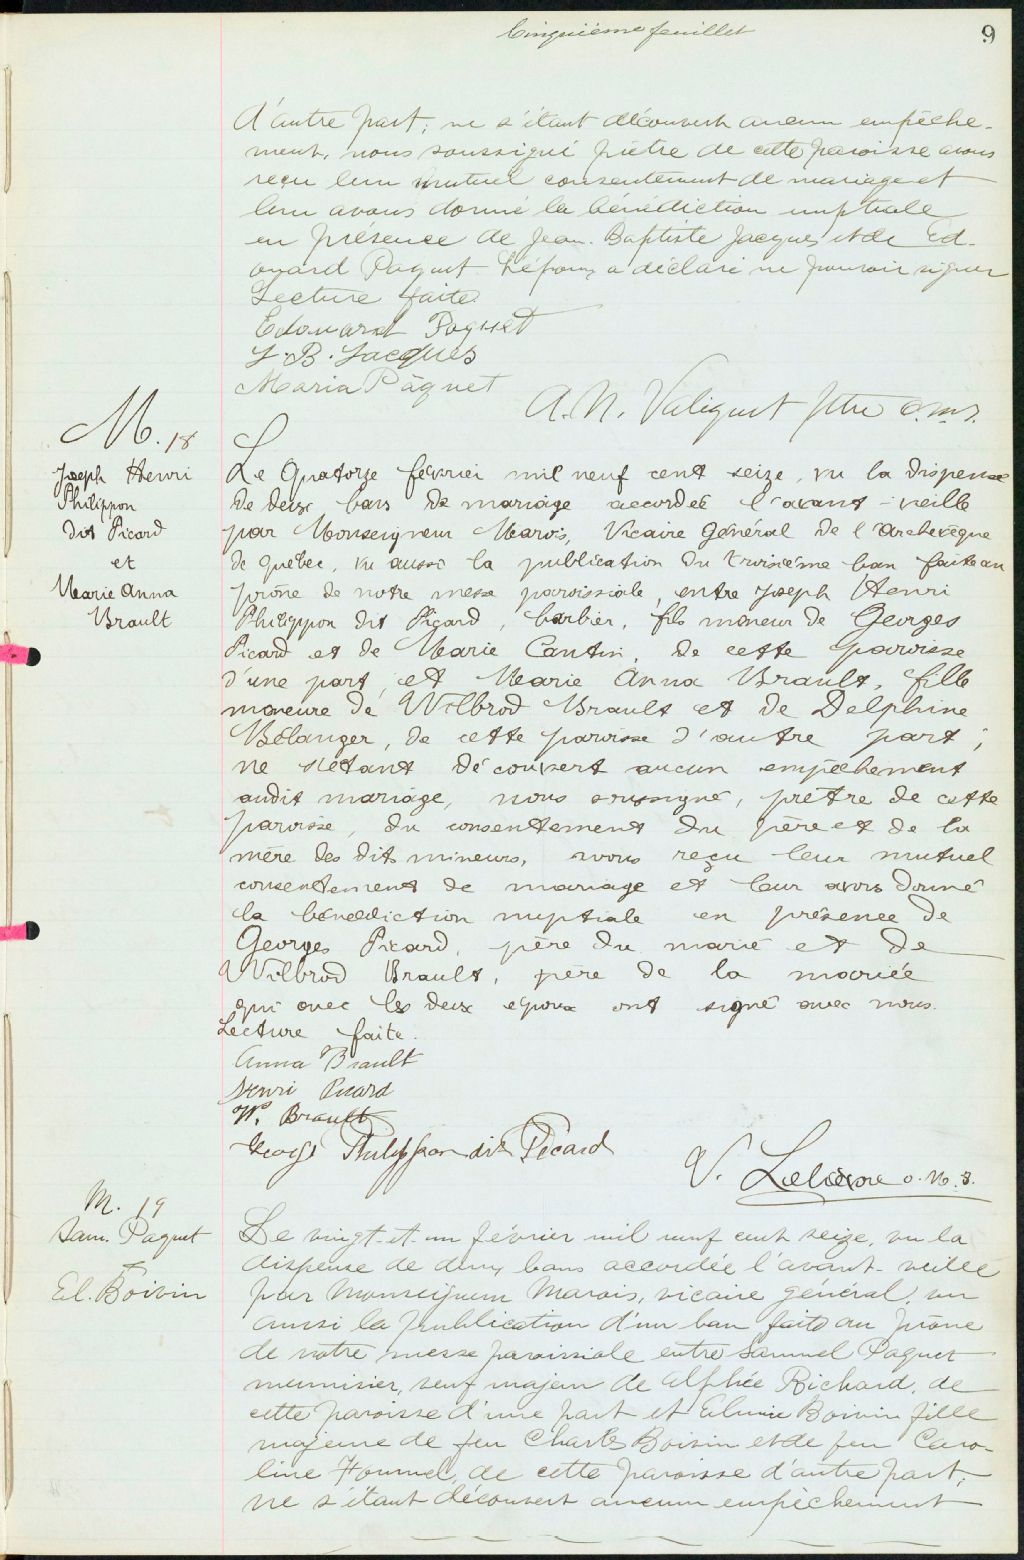 Cinquième feuillet
9
d'autre part; ne s'étant découvert aucun empêche-
ment, nous soussigné prêtre de cette paroisse avons
reçu leur mutuel consentement de mariage et
leur avons donné la bénédiction nuptiale
en présence de Jean-Baptiste Jacques et de Ed-
ouard Paquet. L'époux a déclaré ne pouvoir signer
Lecture faite.
Edouard Paquet
J. B. Jacques
Maria Pâquet
A. N. Valiquet ptre o.m.i.
M. 18
Joseph Henri
Philippon
dit Picard
et
Marie Anna
Brault
Le Quatorze février mil neuf cent seize, vu la dispense
de deux bans de mariage accordée l'avant-veille
par Monseigneur Marois, Vicaire Général de l'archevêque
de Québec, vu aussi la publication du troisième ban faite au
prône de notre messe paroissiale, entre Joseph Henri
Philippon dit Picard, barbier, fils mineur de Georges
Picard et de Marie Cantin, de cette paroisse
d'une part, et Marie Anna Brault, fille
mineure de Wilbrod Brault et de Delphine
Bélanger, de cette paroisse d'autre part;
ne s'étant découvert aucun empêchement
audit mariage, nous soussigné, prêtre de cette
paroisse, du consentement du père et de la
mère des dits mineurs, avons reçu leur mutuel
consentement de mariage et leur avons donné
la bénédiction nuptiale en présence de
Georges Picard, père du marié et de
Wilbrod Brault, père de la mariée
qui avec les deux époux ont signé avec nous.
Lecture faite.
Anna Brault
Henri Picard
W. Brault
George Philippon dit Picard
V. Lelièvre o.m.i.
M. 19
Sam. Paquet
et
El. Boivin
Le vingt-et-un février mil neuf cent seize, vu la
dispense de deux bans accordée l'avant-veille
par Monseigneur Marois, vicaire général, vu
aussi la publication d'un ban faite au prône
de notre messe paroissiale entre Samuel Paquet
menuisier, veuf majeur de Alphée Richard, de
cette paroisse d'une part et Elmire Boivin fille
majeure de feu Charles Boivin et de feu Caro-
line Hamel, de cette paroisse d'autre part;
ne s'étant découvert aucun empêchement